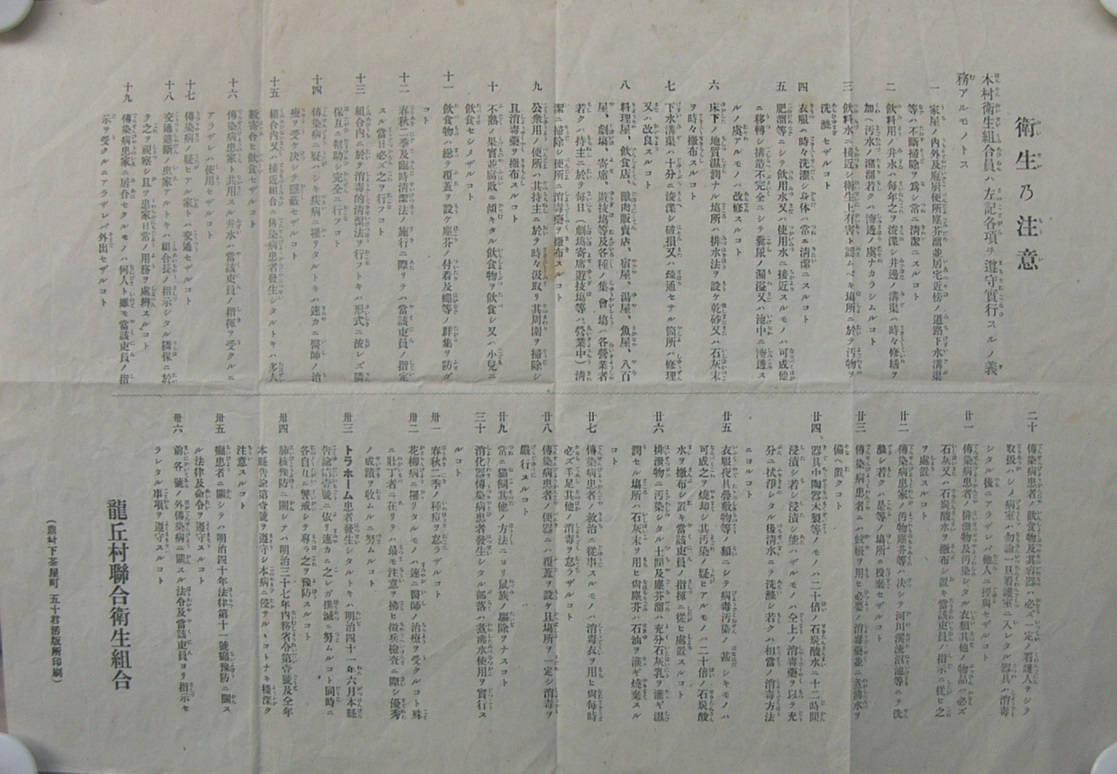 衛生乃注意
本村衛生組合員ハ左記各項ヲ遵守實行スルノ義
務アルモノトス
一 家屋ノ内外及庖厨便所塵芥溜並居宅近傍ノ道路下水溝渠
等ハ不斷掃除ヲ爲シ常ニ清潔ニスルコト
二 飲料用ノ井水ハ毎年之ヲ浚渫シ井邊ノ溝渠ハ時々修繕ヲ
加ヘ汚水ノ溜溜若クハ滲透ノ虞ナカラシムルコト
三 飲料水ニ接近シ衛生上有害ト認ムベキ塲所ニ於テ汚物ヲ
洗滌セザルコト
四 衣服ハ時々洗濯シ身体ハ常ニ清潔ニスルコト
五 肥溜等ニシテ飲用水又ハ使用水ニ接近スルモノハ可成他
ニ移轉シ構造不完全ニシテ糞尿ノ漏溢又ハ地中ニ滲透ス
ルノ虞アルモノハ改修スルコト
六 床下ノ地質濕潤ナル塲所ハ排水法ヲ設ケ乾砂又ハ石灰末
ヲ時々撒布スルコト
七 下水溝渠ハ十分ニ浚渫シ破損又ハ疏通セサル箇所ハ修理
又ハ改良スルコト
八 料理屋、飲食店、獸肉販賣店、宿屋、湯屋、魚屋、八百
屋、劇塲、寄席、遊技塲等及各種ノ集會塲ハ各營業者
若クハ持主ニ於テ毎日(劇塲寄席遊技塲等ハ營業中)清
潔ニ掃除シ便所ニ消毒藥ヲ撒布スルコト
九 公衆用ノ便所ハ其持主ニ於テ時々汲取リ其周圍ヲ掃除シ
且消毒藥ヲ撒布スルコト
十 不熟ノ果實及腐敗ニ傾キタル飲食物ヲ飲食シ又ハ小兒ニ
飲食セシメザルコト
十一 飲食物ハ總テ覆蓋ヲ設ケ塵芥ノ付着及蠅等ノ群集ヲ防グ
コト
十二 春秋二季及臨時清潔法ノ施行ニ際シテハ當該吏員ノ指定
スル當日必ズ之ヲ行フコト
十三 組合内ニ於テ消毒的清潔法ヲ行フトキハ形式ニ流レズ隣
保互ニ相助ケ完全ニ行フコト
十四 傳染病ニ疑ハシキ疾病ニ罹リタルトキハ速カニ醫師ノ治
療ヲ受ケ決シテ隱蔽セザルコト
十五 組合内又ハ接近組合ニ傳染病患者發生シタルトキハ多人
數寄合ヒ飲食セザルコト
十六 傳染病患家ト共用スル井水ハ當該吏員ノ指揮ヲ受クルニ
アラザレバ使用セザルコト
十七 傳染病ノ疑ヒアル家ト交通セザルコト
十八 交通遮斷ノ患家アルトキハ組合長ノ指示シタル隣保ニ於
テ之ヲ視察シ且ツ患家日常ノ用務ヲ處辨スルコト
十九 傳染病患家ニ居合セタルモノハ何人ト雖モ當該吏員ノ指
示ヲ受クルニアラザレバ外出セザルコト
二十 傳染病患者ノ飲食物及其容器ハ必ズ一定ノ看護人ヲシテ
取扱ハシメ病室ハ勿論一旦看護室ニ入レタル器具ハ消毒
シタル後ニアラザレバ他人ニ授與セザルコト
廿一 傳染病患者ノ排泄物及汚染シタル衣類其他ノ物品ハ必ズ
石灰又ハ石炭酸水ヲ撒布シ置キ當該吏員ノ指示ニ從ヒ之
ヲ處置スルコト
廿二 傳染病患家ノ汚物塵芥等ハ決シテ河川溝渠沼池等ニテ洗
滌シ若クハ是等ノ塲所ニ投棄セザルコト
廿三 傳染病患者ニハ蚊帳ヲ用ヒ必要ノ消毒藥並ニ煮沸水ヲ
備ヘ置クコト
廿四 器具中陶器木製等ノモノハ二十倍ノ石炭酸水ニ十二時間
浸漬シ若シ浸漬シ能ハザルモノハ仝上ノ消毒藥ヲ以テ充
分ニ拭淨シタル後清水ニテ洗滌シ若クハ相當ノ消毒方法
ニヨルコト
廿五 衣服寢具疊敷物等ノ類ニシテ病毒汚染ノ甚シキモノハ
可成之ヲ燒却シ其汚染ノ疑ヒアルモノハ二十倍ノ石炭酸
水ヲ撒布シ置キ當該吏員ノ指揮ニ從ヒ處置スルコト
廿六 排泄物ニ汚染シタル土間及塵芥溜ハ充分石灰乳ヲ灌ギ濕
潤セル塲所ハ石灰末ヲ用ヒ尙塵芥ハ石油ヲ灌ギ燒棄スル
コト
廿七 傳染病患者ノ救治ニ從事スルモノハ消毒衣ヲ用ヒ尙毎時
必ズ手足其他ノ消毒ヲ怠ラザルコト
廿八 傳染病患者ノ便器ニハ覆蓋ヲ設ケ且塲所ヲ一定シ消毒ヲ
嚴行スルコト
廿九 常ニ猫飼其他ノ方法ニヨリ鼠族ノ驅除ヲナスコト
三十 消化器傳染病患者發生シタル部落ハ煮沸水使用ヲ實行ス
ルコト
卅一 春秋二季ノ種痘ヲ怠ラザルコト
卅二 花柳病ニ罹リタルモノハ速ニ醫師ノ治療ヲ受クルコト殊
ニ壯丁者ニ在リテハ最モ注意ヲ拂ヒ徴兵檢査ニ際シ優秀
ノ成蹟ヲ收ムルニ努ムルコト
卅三 トラホーム患者發生シタルトキハ明治四十一年六月本縣
告諭第壹號ニ依リ速カニ之レガ撲滅ニ努ムルコト同時ニ
各自互ニ警戒シ專ラ之ヲ豫防スルコト
卅四 肺核豫防ニ關シテハ明治三十七年内務省令第壹號及全年
本縣告諭第壹號ヲ遵守シ本病ニ侵サルヽコトナキ樣深ク
注意スルコト
卅五 癩患者ニ關シテハ明治四十年法律第十一號癩豫防ニ關ス
ル法律及命令ヲ遵守スルコト
卅六 前各號ノ外傳染病ニ關スル法令及當該吏員ヨリ指示セ
ラレタル事項ヲ遵守スルコト
龍丘村聯合衛生組合